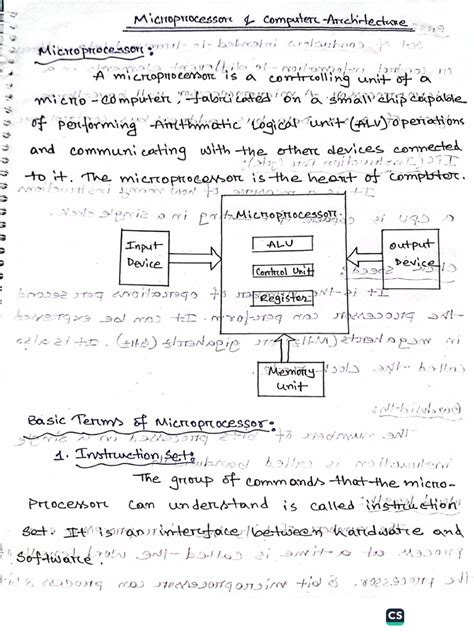 Microprocessor & Computer Architecture
Microprocessor:
A microprocessor is a controlling unit of a
micro-computer, fabricated on a small chip capable
of performing Arithmatic Logical Unit (ALU) operations
and communicating with the other devices connected
to it. The microprocessor is the heart of computer.
Microprocessor
Input
Device
ALU
Control Unit
Register
output
Device
Memory
Unit
Basic Terms of Microprocessor:
1. Instruction Set:
The group of commands that the micro-
Processor can understand is called instruction
Set. It is an interface between hardware and
Software.
CS